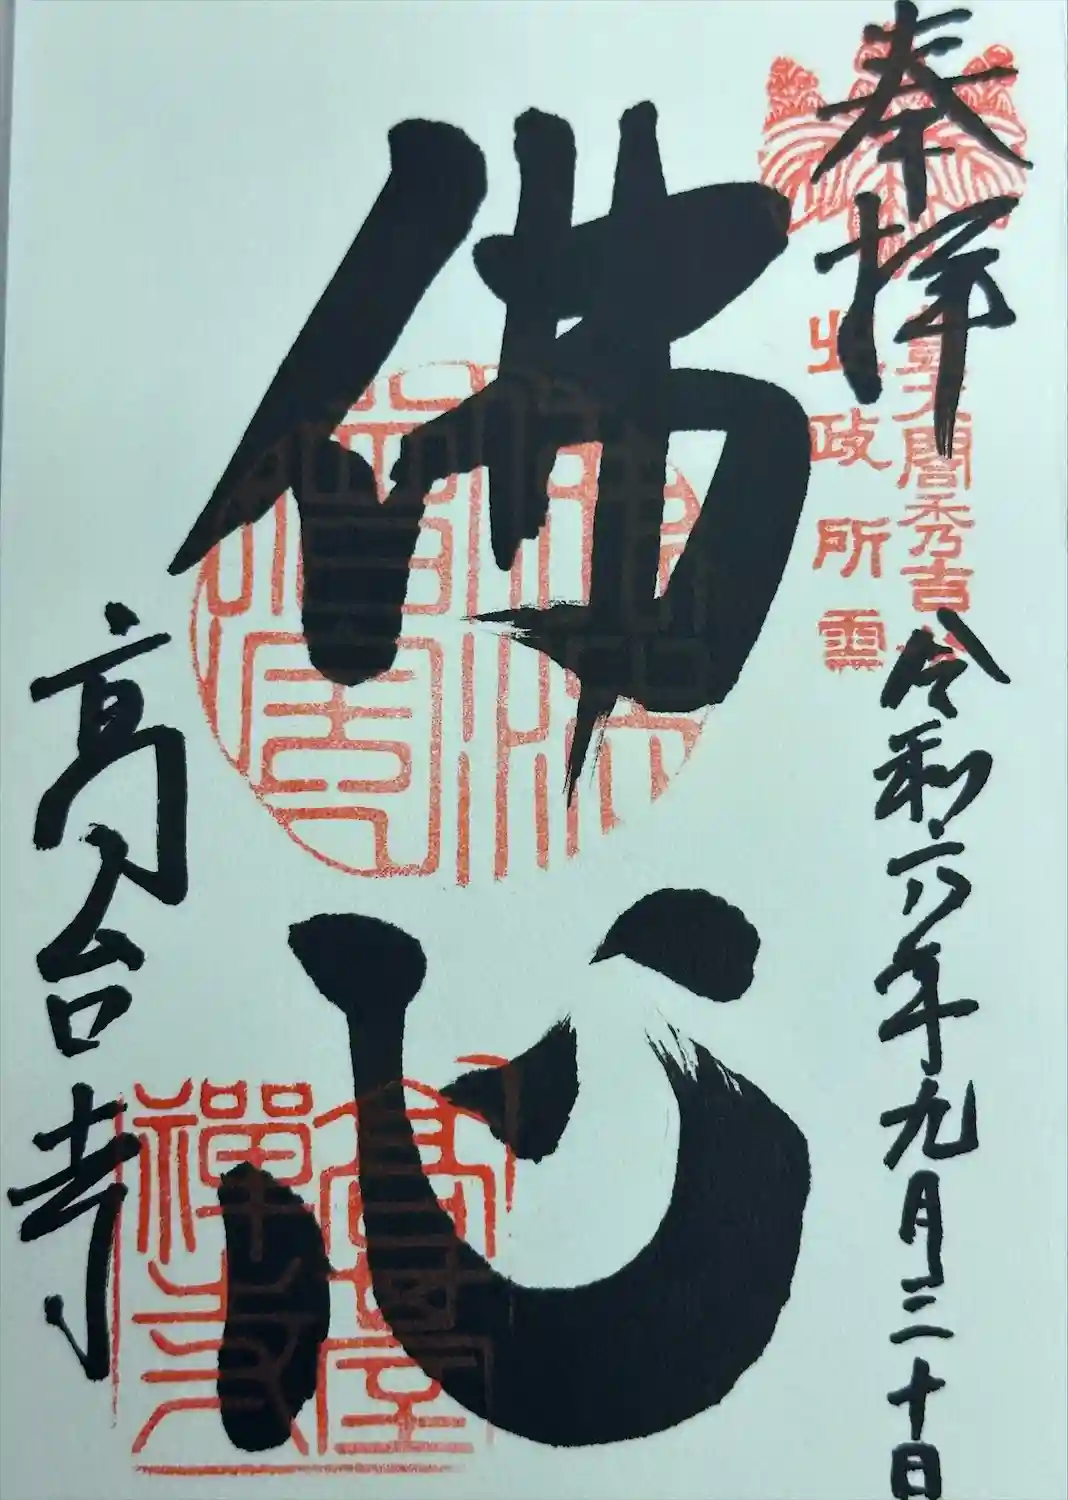 奉拝
豊太閤秀吉公
北政所霊
令和六年九月二十日
佛心
高台寺
高臺禅寺